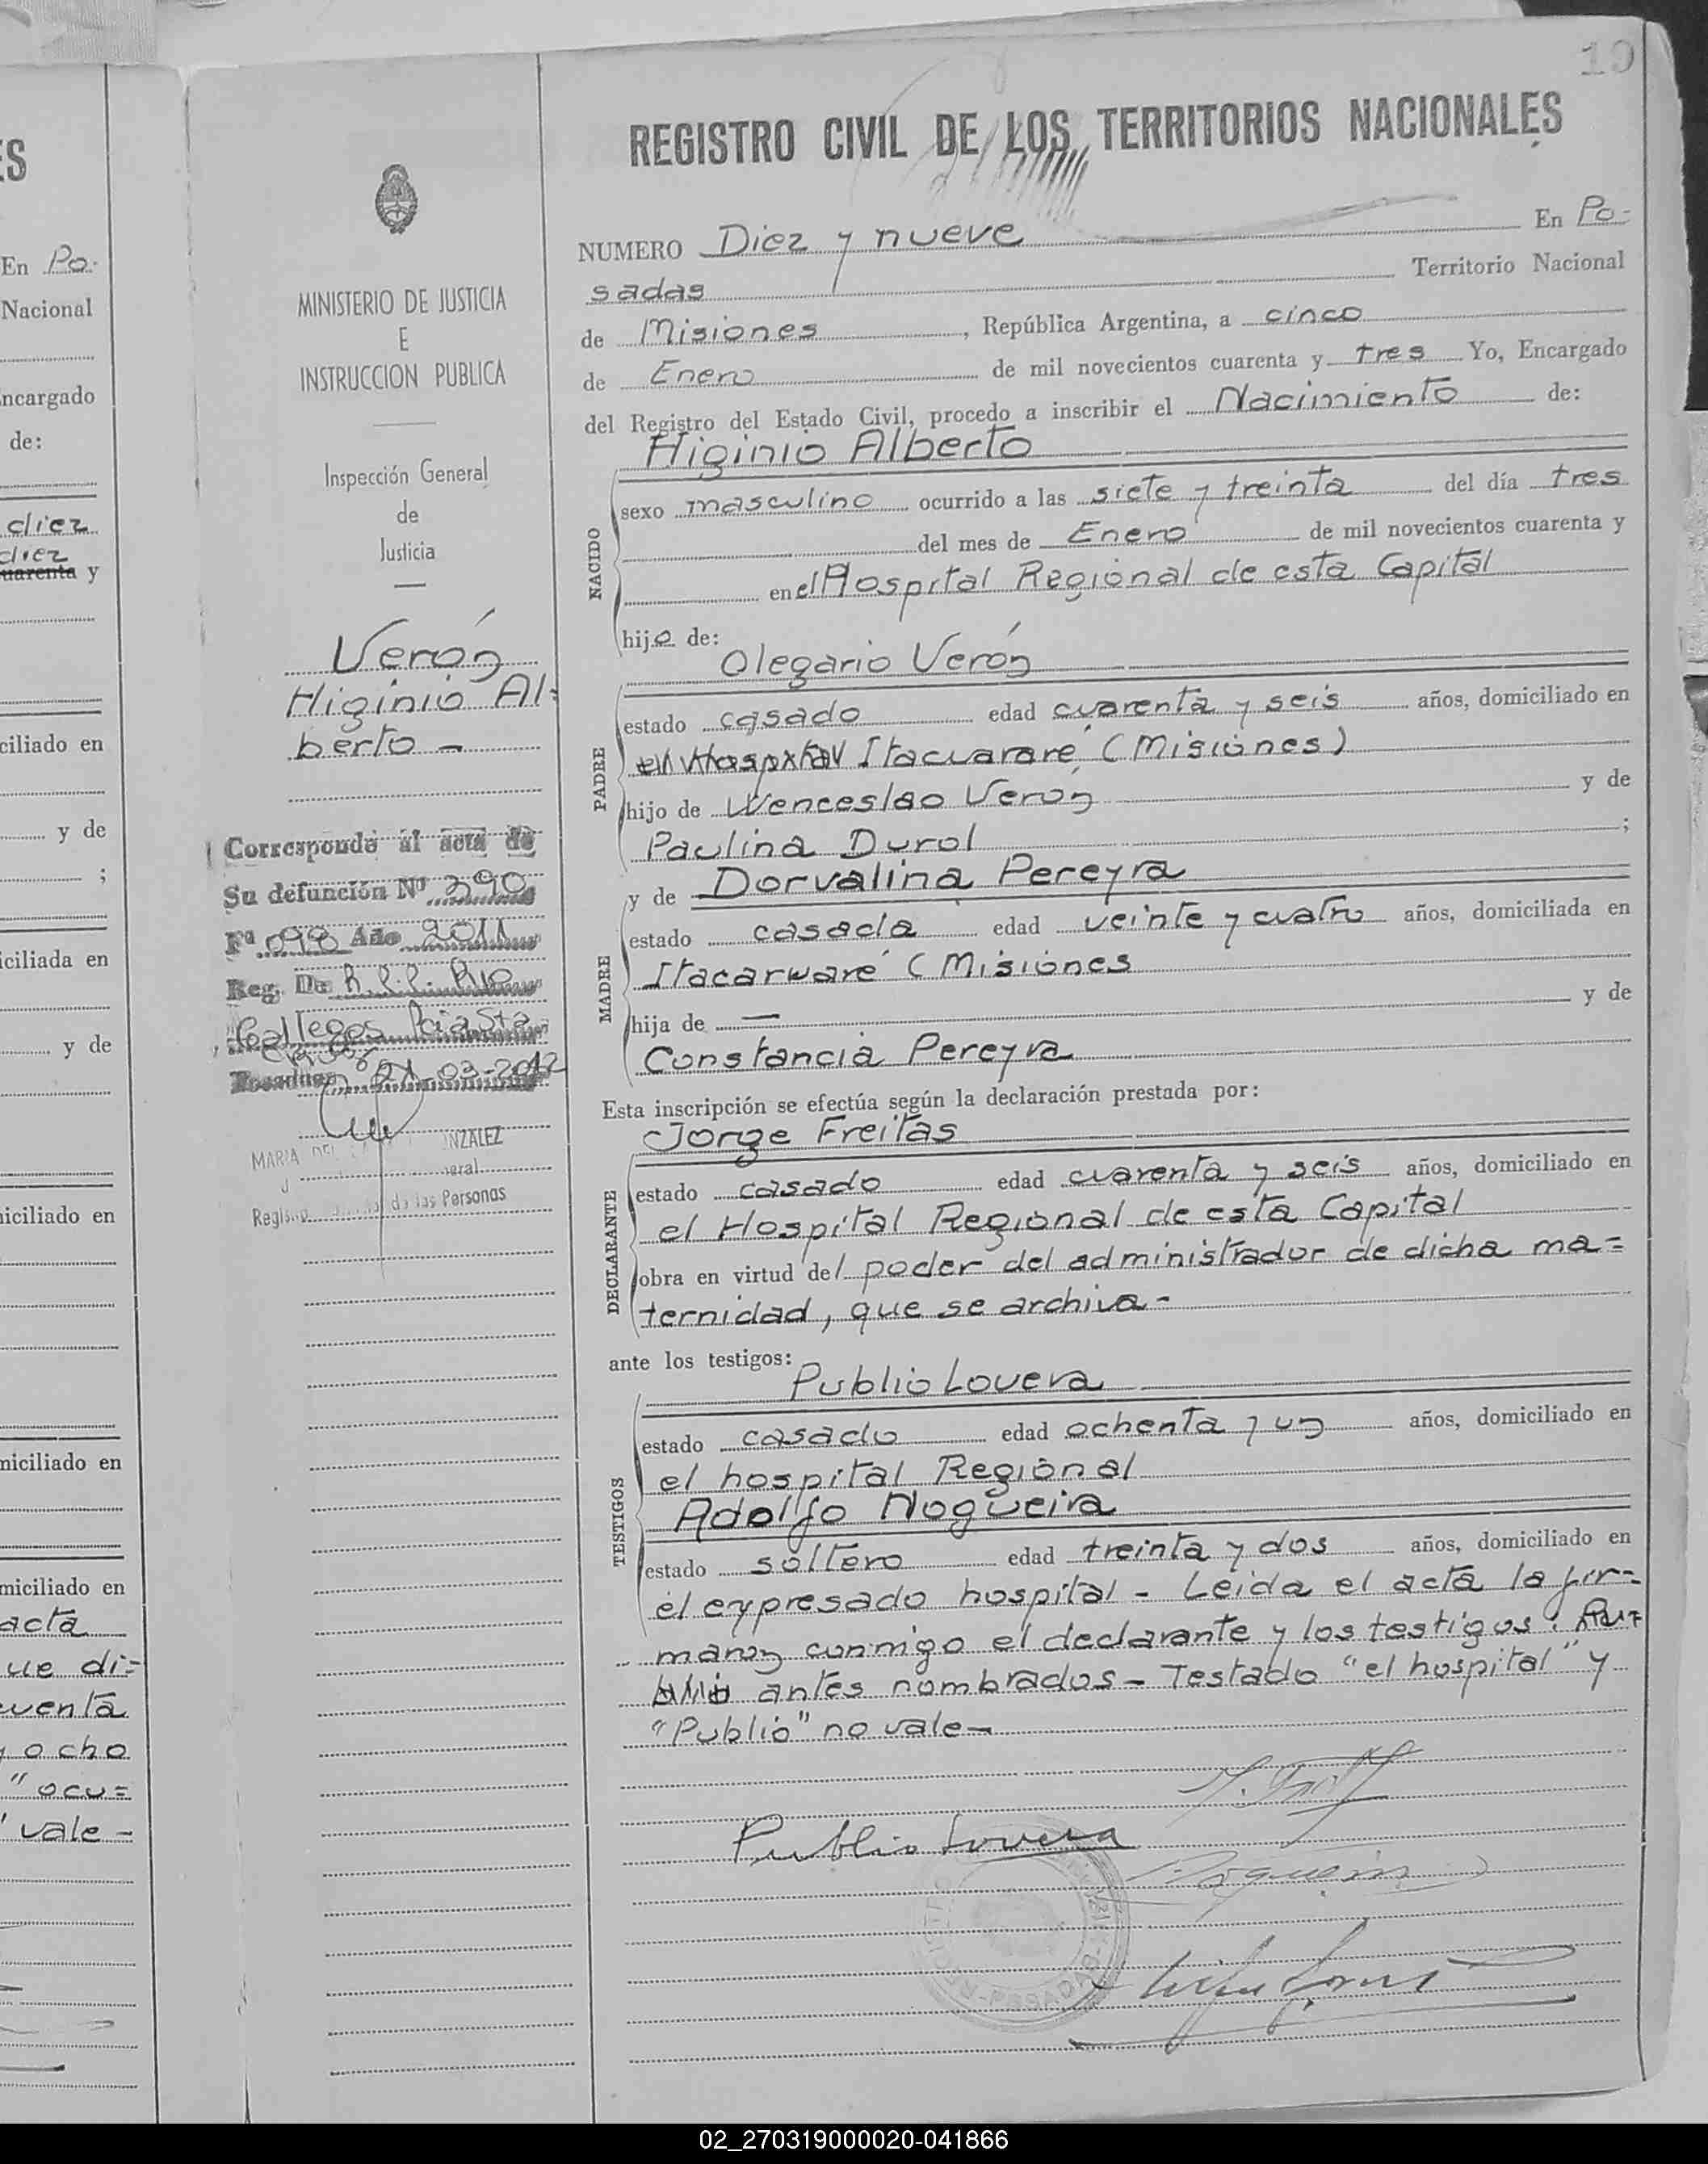 ES
En Po-
Nacional
Encargado
de:
diez
diez
cuarenta y
ciliado en
y de
;
iciliada en
y de
iciliado en
miciliado en
miciliado en
acta
ue di=
cuenta
y ocho
" ocu=
" vale -
MINISTERIO DE JUSTICIA
E
INSTRUCCION PUBLICA
Inspección General
de
Justicia
Verón
Higinio Al=
berto -
Corresponde al acta de
Su defunción Nº 390
Fº 098 Año 2011
Reg. De R.P.P. Rio
Gallegos Pcia Sta
Cruz
Posadas, 21-03-2012
MARIA DEL NZALEZ
neral
Regis de las Personas
19
REGISTRO CIVIL DE LOS TERRITORIOS NACIONALES
NUMERO Diez y nueve En Po-
sadas Territorio Nacional
de Misiones, República Argentina, a cinco
de Enero de mil novecientos cuarenta y tres Yo, Encargado
del Registro del Estado Civil, procedo a inscribir el Nacimiento de:
Higinio Alberto
NACIDO
sexo masculino ocurrido a las siete y treinta del día tres
del mes de Enero de mil novecientos cuarenta y
en el Hospital Regional de esta Capital
hijo de:
Olegario Verón
PADRE
estado casado edad cuarenta y seis años, domiciliado en
el Hospital Itacuararé (Misiones)
hijo de Wenceslao Verón y de
Paulina Durol ;
y de Dorvalina Pereyra
MADRE
estado casada edad veinte y cuatro años, domiciliada en
Itacarware (Misiones
hija de — y de
Constancia Pereyra
Esta inscripción se efectúa según la declaración prestada por:
Jorge Freitas
DECLARANTE
estado casado edad cuarenta y seis años, domiciliado en
el Hospital Regional de esta Capital
obra en virtud del poder del administrador de dicha ma=
ternidad, que se archiva-
ante los testigos:
Publio Lovera
TESTIGOS
estado casado edad ochenta y un años, domiciliado en
el hospital Regional
Adolfo Nogueira
estado soltero edad treinta y dos años, domiciliado en
el expresado hospital - Leida el acta la fir=
maron conmigo el declarante y los testigos.
antes nombrados - Testado "el hospital" y
"Publio" no vale-
Publio Lovera
REGISTRO
02_270319000020-041866